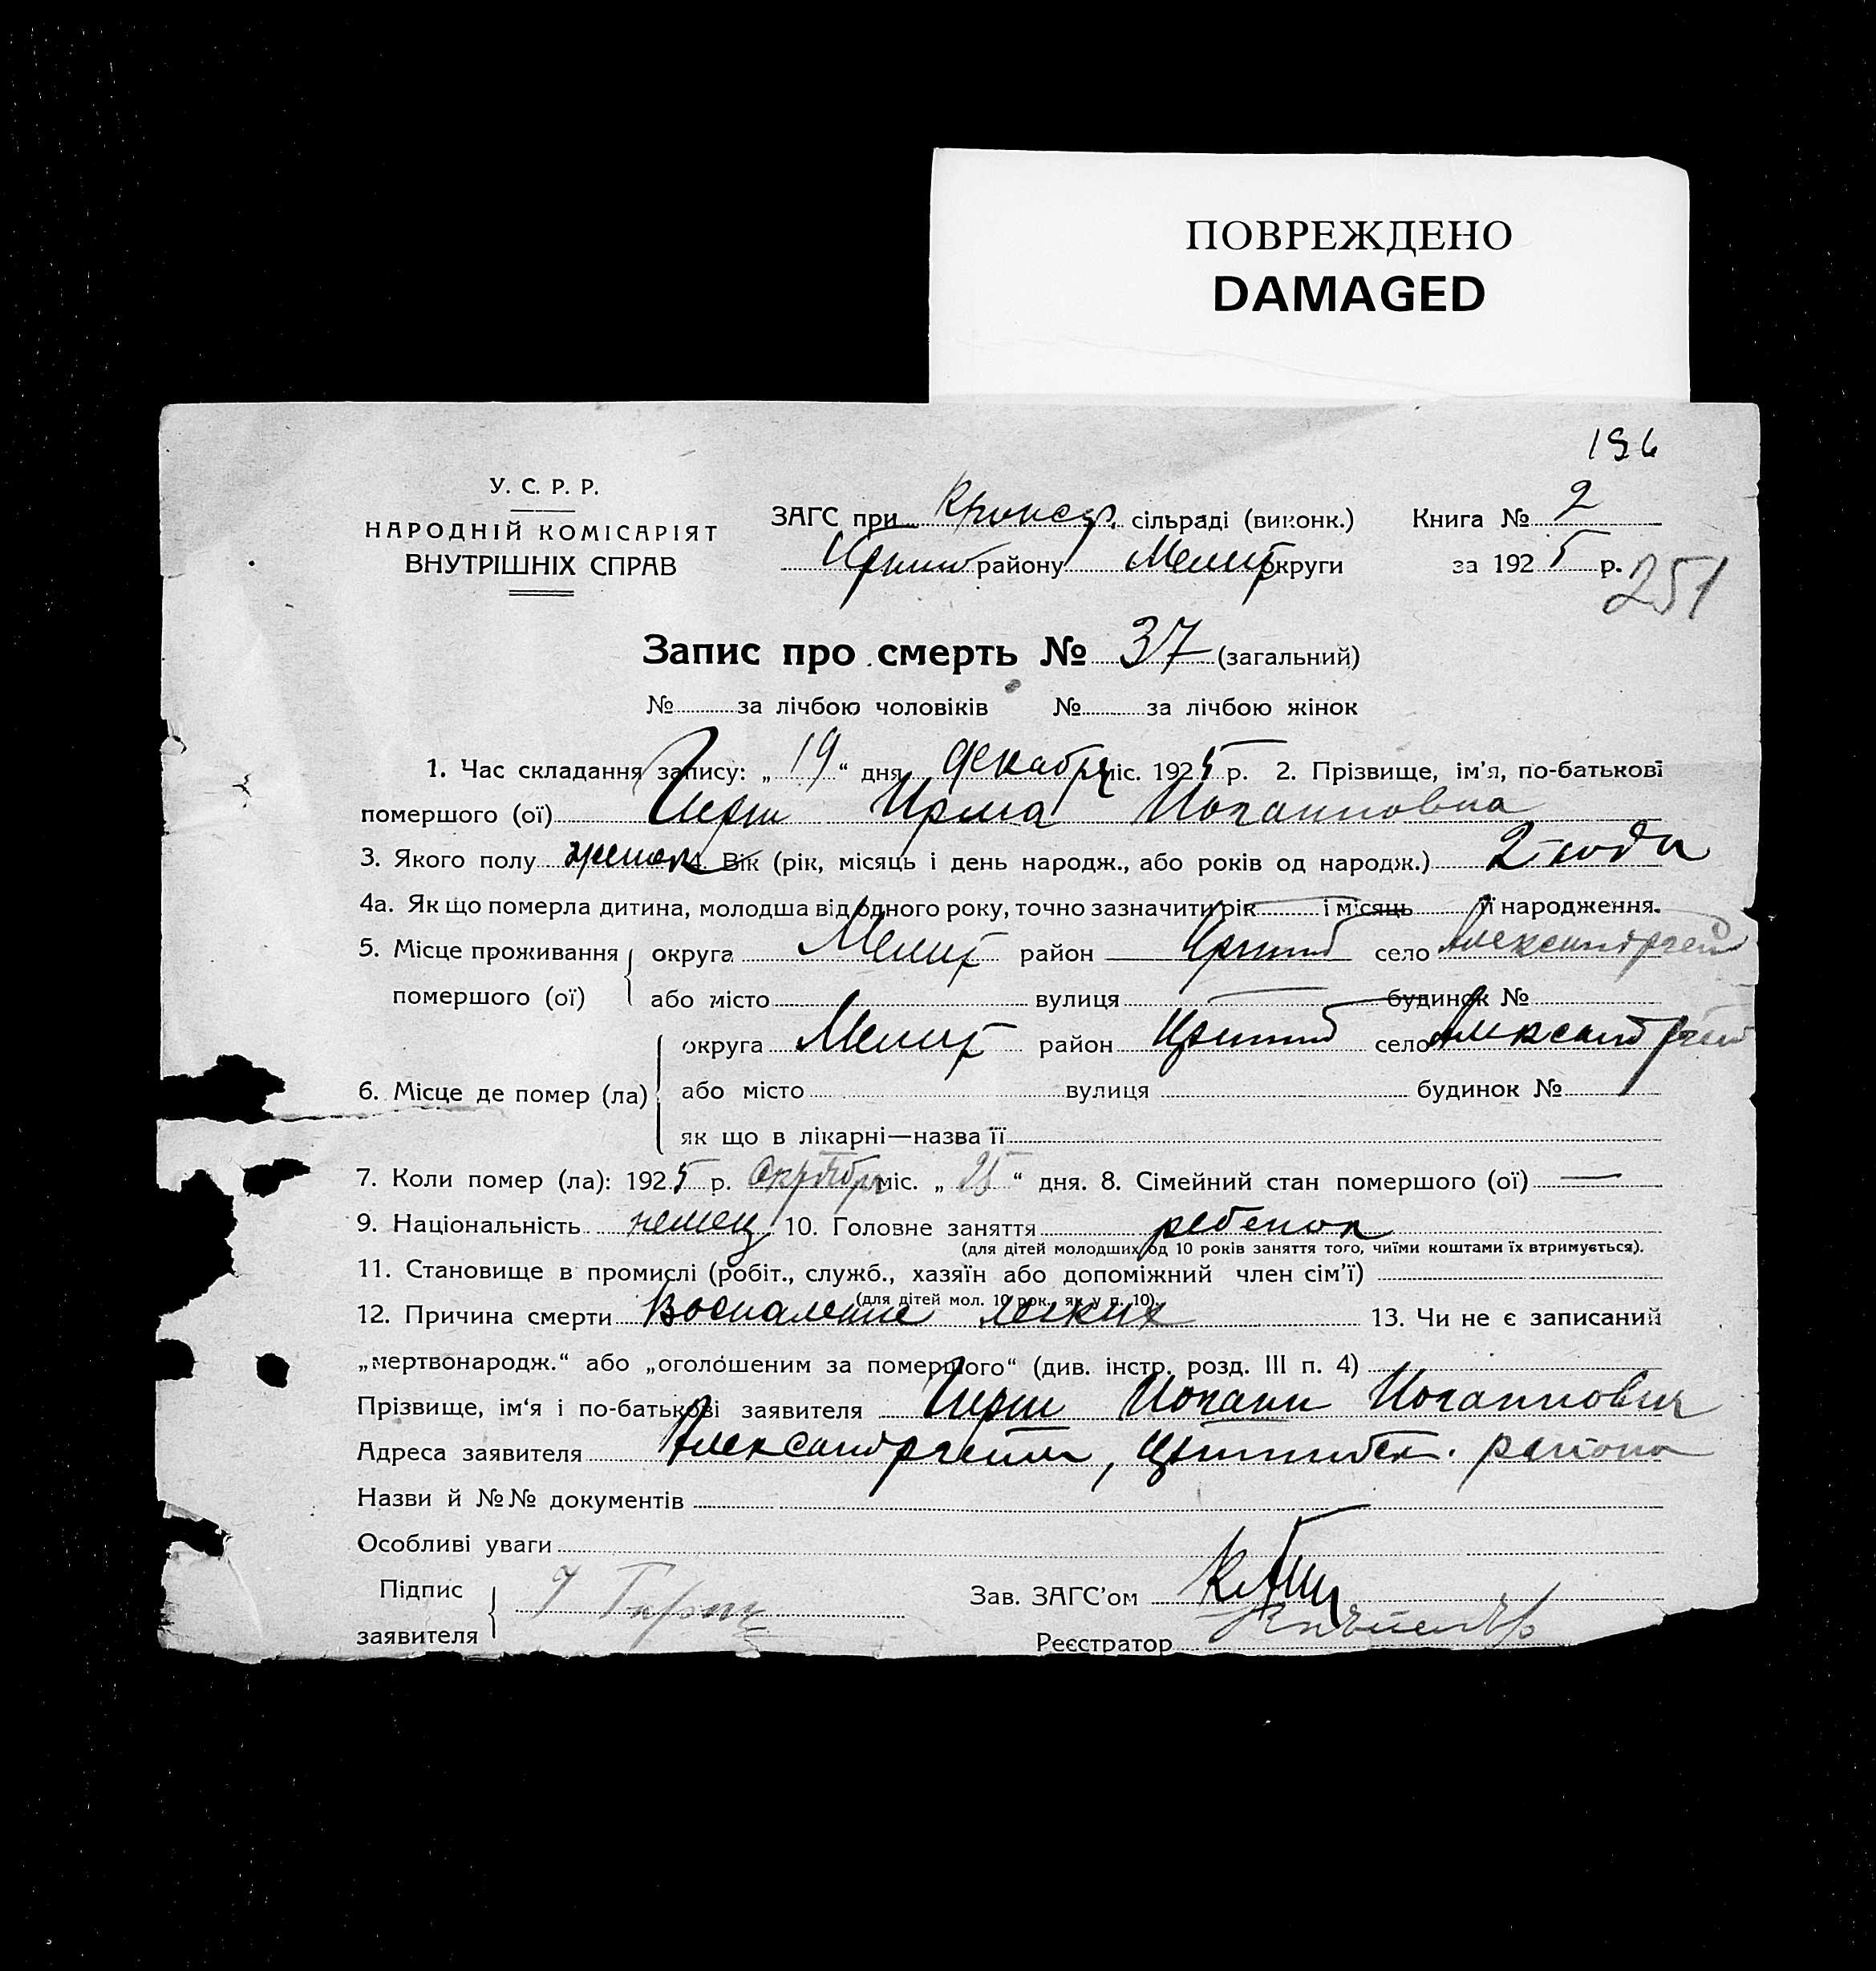 ПОВРЕЖДЕНО
DAMAGED
196
У. С. Р. Р.
НАРОДНІЙ КОМІСАРІЯТ
ВНУТРІШНІХ СПРАВ
ЗАГС при сільраді (виконк.)
району Мелит округи
Книга № 2
за 1925 р.
251
Запис про смерть № 37 (загальний)
№ за лічбою чоловіків № за лічбою жінок
1. Час складання запису: „ 19 “ дня декабря міс. 1925 р. 2. Прізвище, ім'я, по-батькові
помершого (ої) Гирш Ирма Иоганновна
3. Якого полу женск 4. Вік (рік, місяць і день народж., або років од народж.) 2 года
4а. Як що померла дитина, молодша від одного року, точно зазначити рік і місяць її народження.
5. Місце проживання помершого (ої) округа Мелит район село Александргейм
або місто вулиця будинок №
6. Місце де помер (ла) округа Мелит район село Александргейм
або місто вулиця будинок №
як що в лікарні—назва її
7. Коли помер (ла): 1925 р. Октября міс. „ 25 “ дня. 8. Сімейний стан помершого (ої) —
9. Національність немец 10. Головне заняття ребенок
(для дітей молодших од 10 років заняття того, чиїми коштами їх втримується).
11. Становище в промислі (робіт., служб., хазяїн або допоміжний член сім'ї)
(для дітей мол. 10 рок., як у п. 10).
12. Причина смерти Воспаление легких 13. Чи не є записаний
„мертвонародж.“ або „оголошеним за помершого“ (див. інстр. розд. III п. 4)
Прізвище, ім'я і по-батькові заявителя Гирш Иоганн Иоганнович
Адреса заявителя Александргейм, района
Назви й №№ документів
Особливі уваги
Підпис заявителя
Зав. ЗАГС'ом
Реєстратор